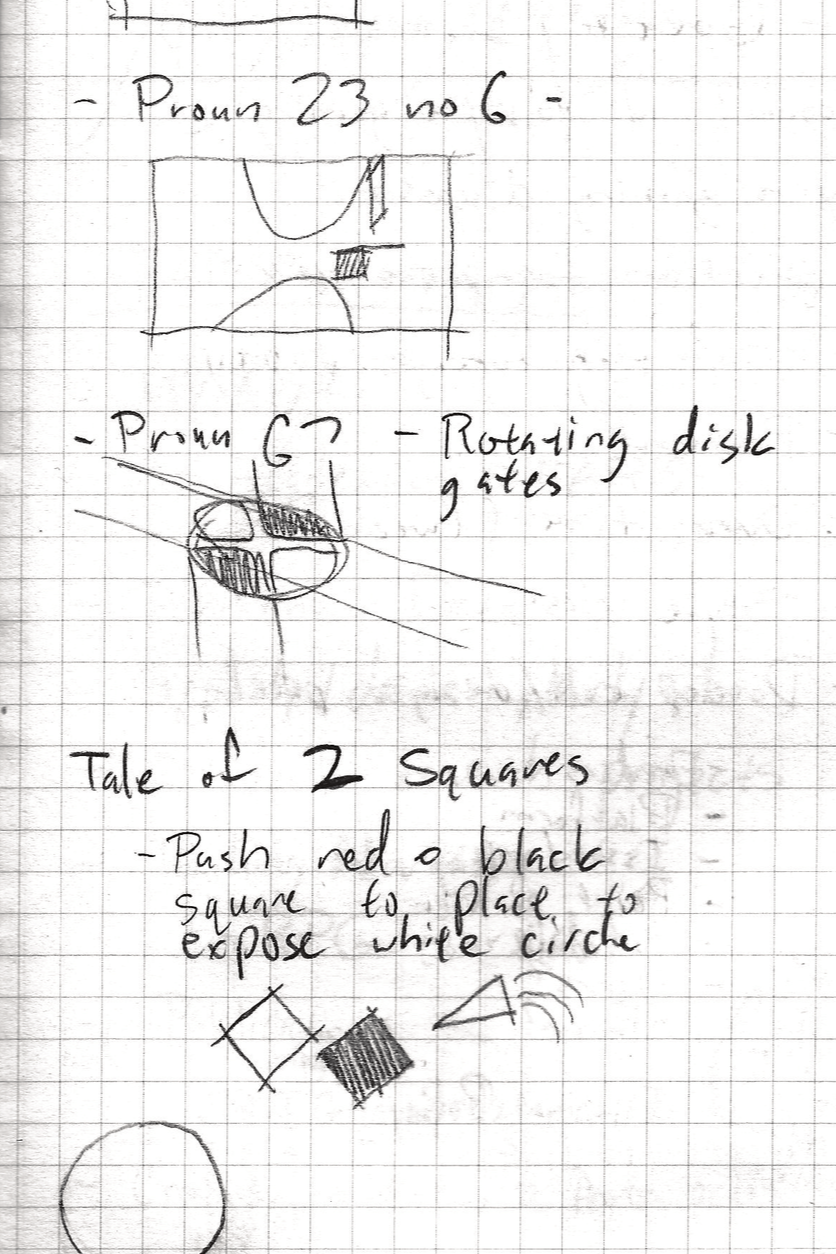 - Proun 23 no 6 -
- Proun G7 - Rotating disk
gates
Tale of 2 Squares
- Push red o black
square to place to
expose white circle